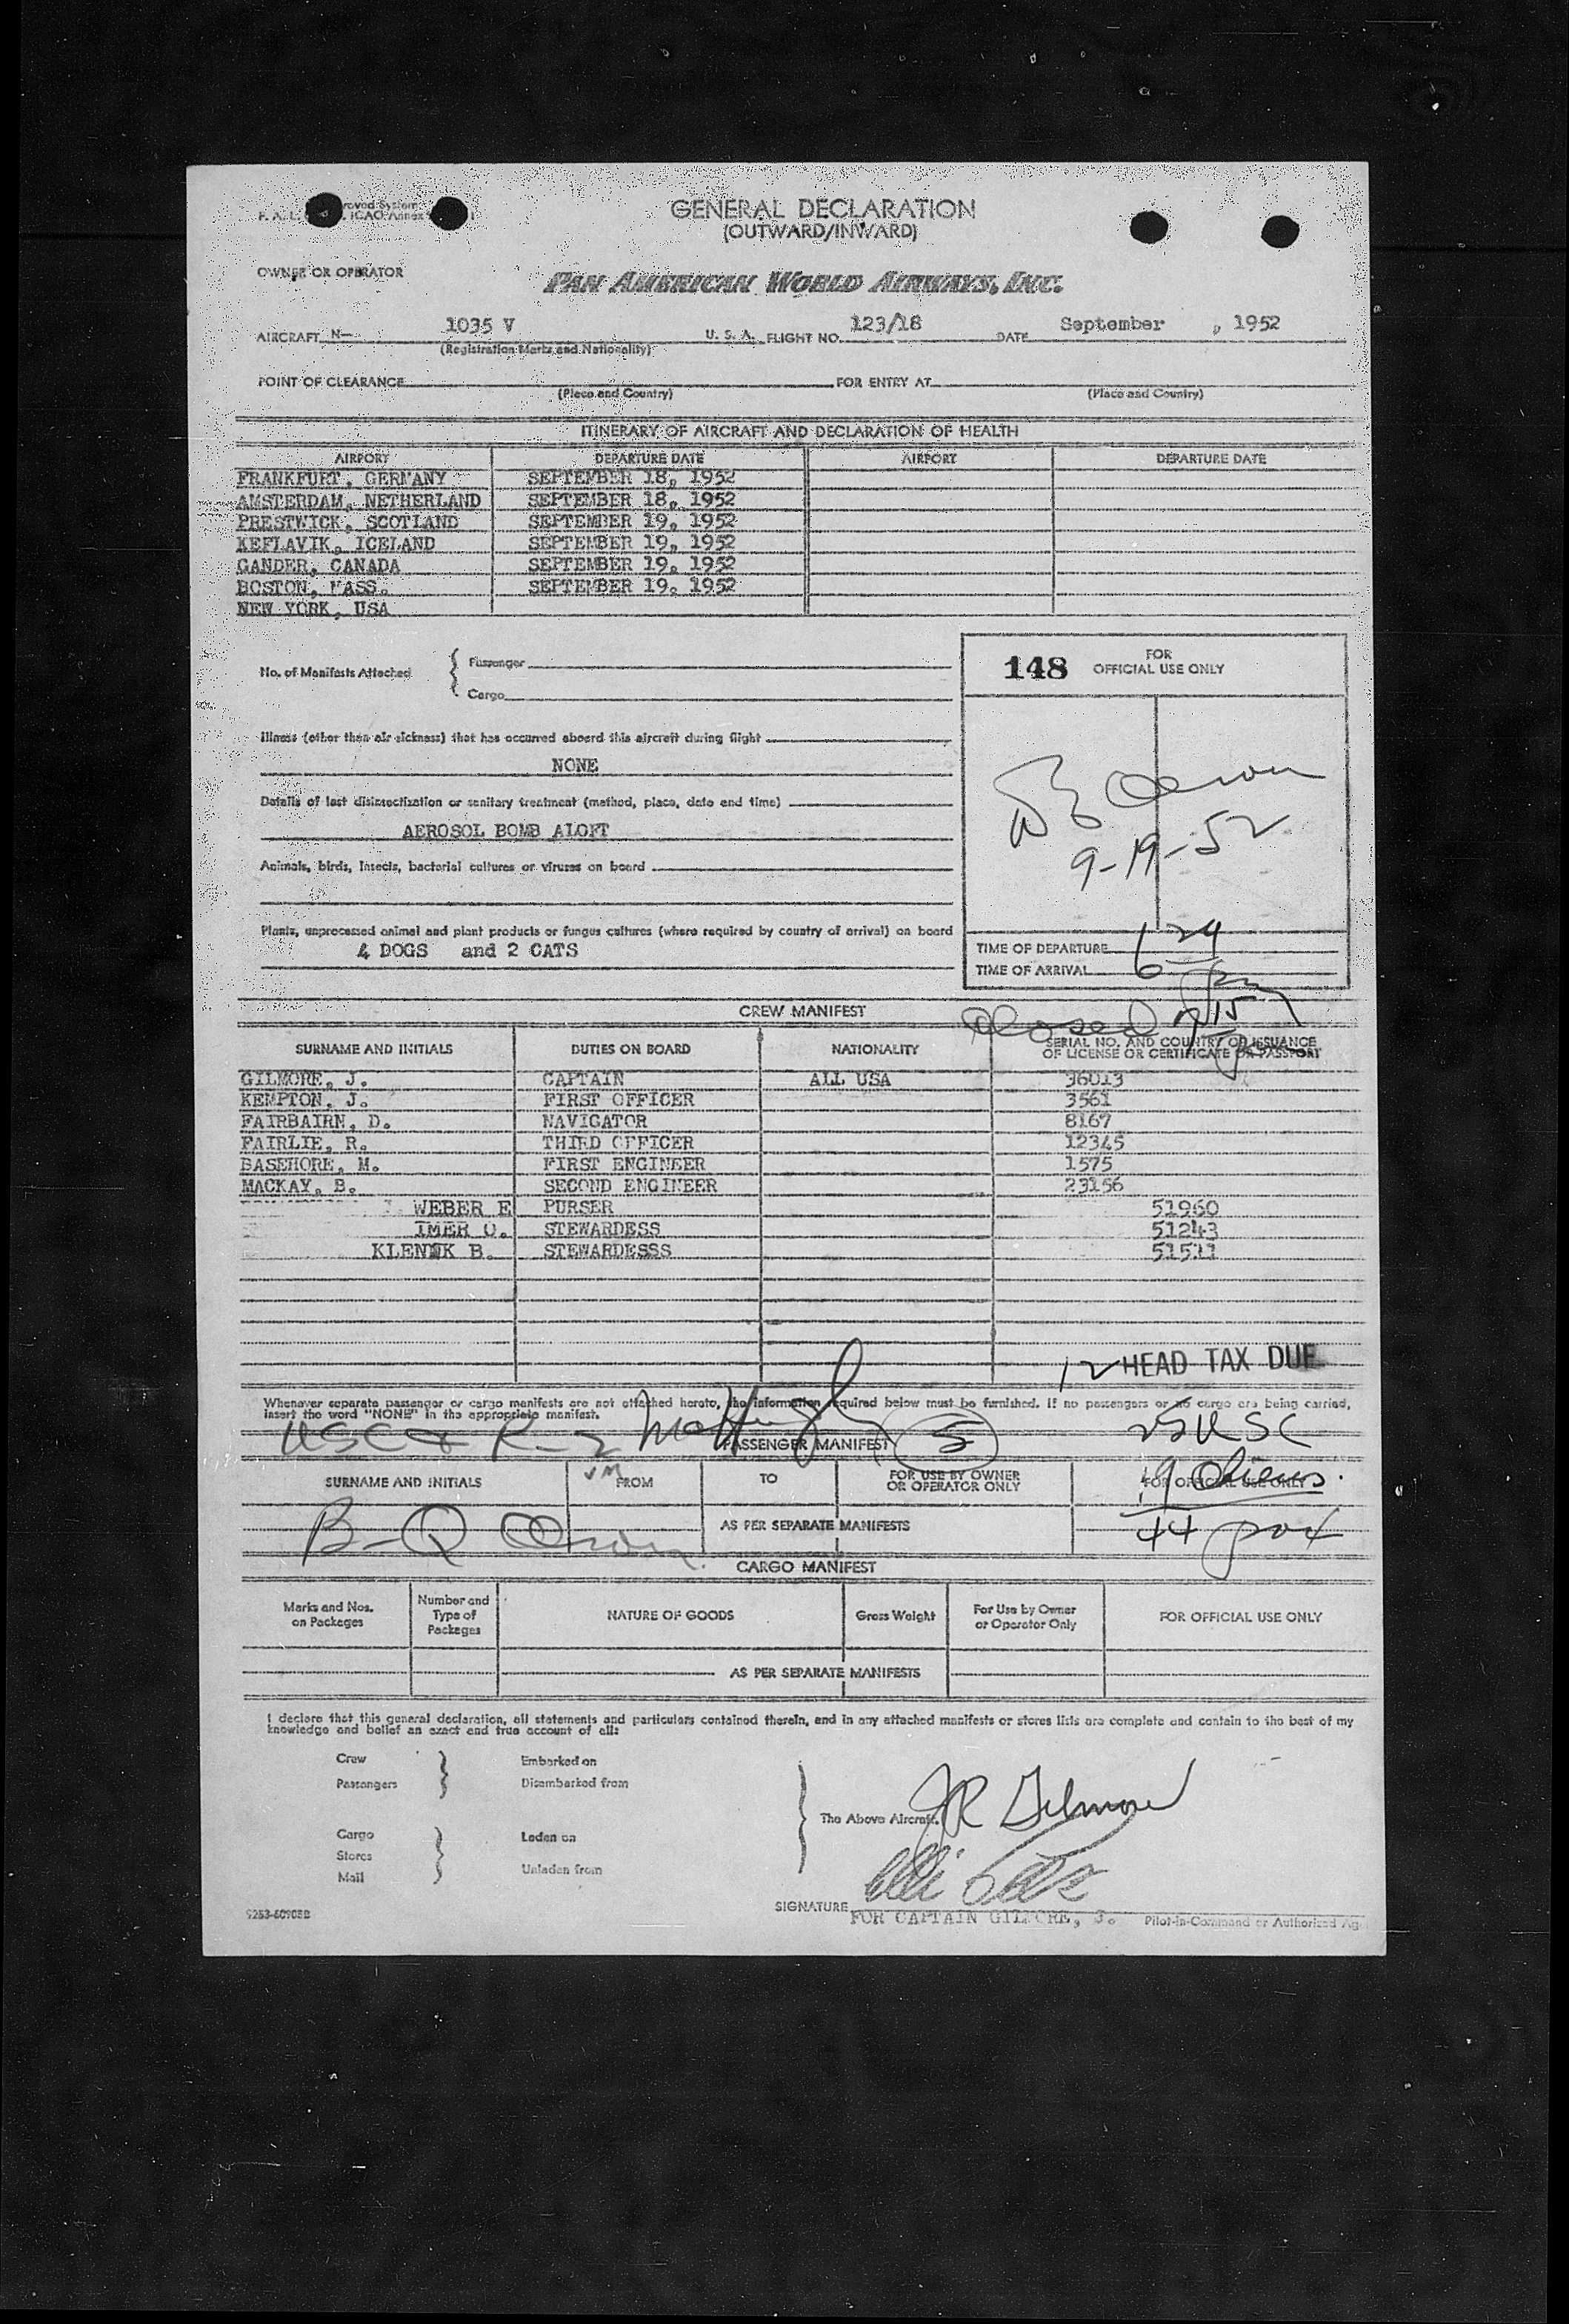 GENERAL DECLARATION
(OUTWARD/INWARD)
OWNER OR OPERATOR
PAN AMERICAN WORLD AIRWAYS, INC.
AIRCRAFT N— 1035 V U. S. A. FLIGHT NO. 123/18 DATE September , 1952
(Registration Marks and Nationality)
POINT OF CLEARANCE FOR ENTRY AT
(Place and Country) (Place and Country)
ITINERARY OF AIRCRAFT AND DECLARATION OF HEALTH
AIRPORT DEPARTURE DATE AIRPORT DEPARTURE DATE
FRANKFURT, GERMANY SEPTEMBER 18, 1952
AMSTERDAM, NETHERLAND SEPTEMBER 18, 1952
PRESTWICK, SCOTLAND SEPTEMBER 19, 1952
KEFLAVIK, ICELAND SEPTEMBER 19, 1952
GANDER, CANADA SEPTEMBER 19, 1952
BOSTON, MASS. SEPTEMBER 19, 1952
NEW YORK, USA
No. of Manifests Attached { Passenger
Cargo
148 FOR
OFFICIAL USE ONLY
Illness (other than air sickness) that has occurred aboard this aircraft during flight
NONE
Details of last disinsectization or sanitary treatment (method, place, date and time)
AEROSOL BOMB ALOFT
9-19-52
Animals, birds, insects, bacterial cultures or viruses on board
Plants, unprocessed animal and plant products or fungus cultures (where required by country of arrival) on board
4 DOGS and 2 CATS
TIME OF DEPARTURE
TIME OF ARRIVAL 6 24
CREW MANIFEST
Closed 7 15
SURNAME AND INITIALS DUTIES ON BOARD NATIONALITY SERIAL NO. AND COUNTRY OF ISSUANCE
OF LICENSE OR CERTIFICATE OR PASSPORT
GILMORE, J. CAPTAIN ALL USA 36013
KEMPTON, J. FIRST OFFICER 3561
FAIRBAIRN, D. NAVIGATOR 8167
FAIRLIE, R. THIRD OFFICER 12345
BASEHORE, M. FIRST ENGINEER 1575
MACKAY, B. SECOND ENGINEER 23156
WEBER E PURSER 51960
IMER U. STEWARDESS 51243
KLENNK B. STEWARDESSS 51511
12 HEAD TAX DUE
Whenever separate passenger or cargo manifests are not attached hereto, the information required below must be furnished. If no passengers or no cargo are being carried,
insert the word "NONE" in the appropriate manifest.
PASSENGER MANIFEST 5 25 USC
SURNAME AND INITIALS FROM TO FOR USE BY OWNER
OR OPERATOR ONLY FOR OFFICIAL USE ONLY
19 Aliens
AS PER SEPARATE MANIFESTS 44 pax
CARGO MANIFEST
Marks and Nos.
on Packages Number and
Type of
Packages NATURE OF GOODS Gross Weight For Use by Owner
or Operator Only FOR OFFICIAL USE ONLY
AS PER SEPARATE MANIFESTS
I declare that this general declaration, all statements and particulars contained therein, and in any attached manifests or stores lists are complete and contain to the best of my
knowledge and belief an exact and true account of all:
Crew Embarked on
Passengers Disembarked from
The Above Aircraft. JR Gilmore
Cargo Laden on
Stores
Mail Unladen from
SIGNATURE
FOR CAPTAIN GILMORE, J. Pilot-in-Command or Authorized
9253-60905B